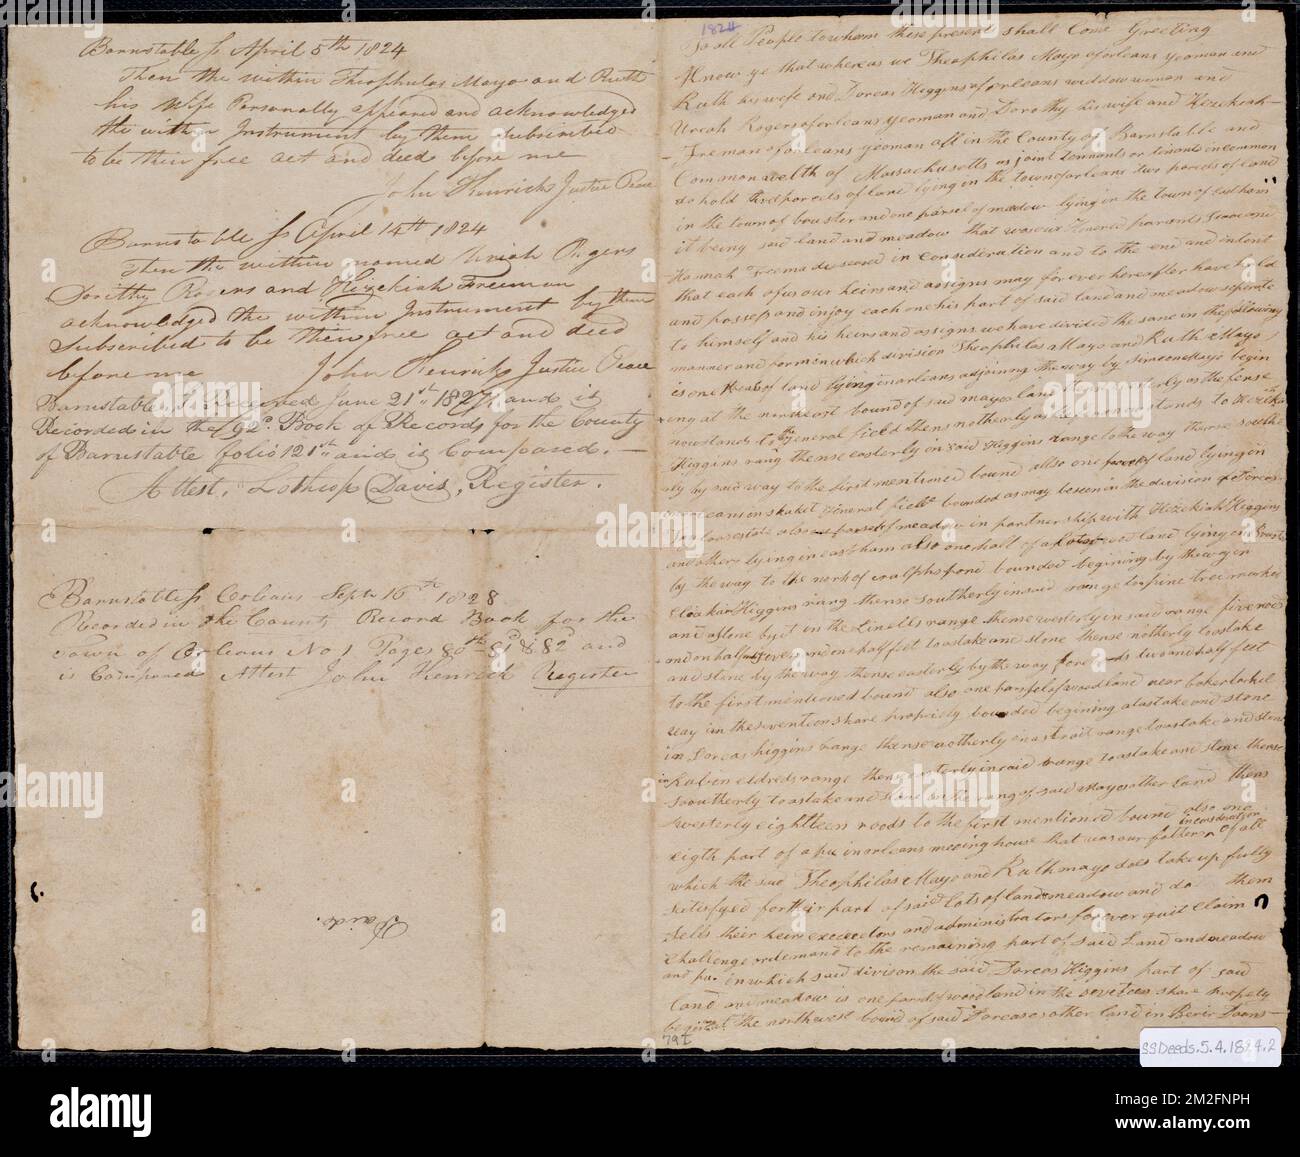 Barnstable ss April 5th 1824
Then the within Theophilus Mayo and Ruth
his Wife Personally appeared and acknowledged
the within Instrument by them subscribed
to be their free act and deed before me
John Kenrick Justice Peace
Barnstable ss April 14th 1824
Then the within named Uriah Rogers
Dorithy Rogers and Hezekiah Freeman
acknowledged the within Instrument by them
Subscribed to be their free act and deed
before me John Kenrick Justice Peace
Barnstable, ss Received June 21st 1827, and is
Recorded in the Book of Records for the County
of Barnstable folio 121st and is Compared.
Attest, Lothrop Davis, Register.
Barnstable ss Orleans Sept 16th 1828
Recorded in the County Record Book for the
Town of Orleans No 1 Pages 80th 81st & 82d and
is Compared Attest John Kenrick Register
Paid.
1824
To all People to whom these present shall Come Greeting
Know ye that whereas we Theophilas Mayo of orleans yeoman and
Ruth his wife and Dorcas Higgins of orleans widdow woman and
Uriah Rogers of orleans yeoman and Dorothy his wife and Hezekiah
Freman of orleans yeoman all in the County of Barnstable and
Common welth of Massachusetts as joint tennants or tenants in common
do hold parcels of land lying in the town of orleans two parcels of land
in the town of and one parsel of meadow lying in the town of eastham
it being said land and meadow that was our parants Isaac and
Hannah Freeman in Consideration and to the end and intent
that each of us our heirs and assigns may for ever hereafter have hold
and posses and enjoy each one his part of said land and meadow seperate
to himself and his heirs and assigns we have divided the same in the following
manner and form in which division Theophilas Mayo and Ruth Mayo
is one of land lying in orleans adjoining the way by Simeon Mayo begin
ing at the northeast bound of said mayos land as the fense
now stands to general field thens northerly as the fence now stands to
Higgins rang thense easterly in said Higgins range to the way thense southe
rly by said way to the first mentioned bound allso one of land lying in
general field bounded as may be seen in the division of Dorcas
also a parsel of meadow in partnership with Hezekiah Higgins
and others lying in eastham also one half of a lot of land lying in
by the way to the north of ralphs pond bounded begining by the way in
Higgins rang thense Southerly in said range to a pine tree marked
and a stone by it in the Linells range thense westerly in said range five rod
and on half feet to a stake and stone thense notherly to a stake
and stone by the way thense easterly by the way rods two and half feet
to the first mentioned bound also one parsel of wood land near
way in the seventeen share propriety bounded begining at a stake and stone
in Dorcas higgins range thense notherly in a strait range to a stake and stone
in Ruben eldreds range thense in said range to a stake and stone thense
Southerly to a stake and stone in the rang of said Mayos other land thens
westerly eighteen roods to the first mentioned bound also one
eigth part of a pu in orleans meeting house that was our fathers in consideration of all
which the said Theophilas Mayo and Ruth mayo does take up fully
satisfyed for their part of said lots of land meadow and do them
selvs their heirs executors and administrators forever quit Claim
Challenge or demand to the remaining part of said Land and meadow
and pu. in which said divison the said Dorcas Higgins part of said
Land and meadow is one parsel of wood land in the seventeen share propiety
begining at the northwest bound of said Dorcases other land in
79 I
SSDeeds.5.4.1824.2
alamy
2M2FNPH
Image ID: 2M2FNPH
www.alamy.com